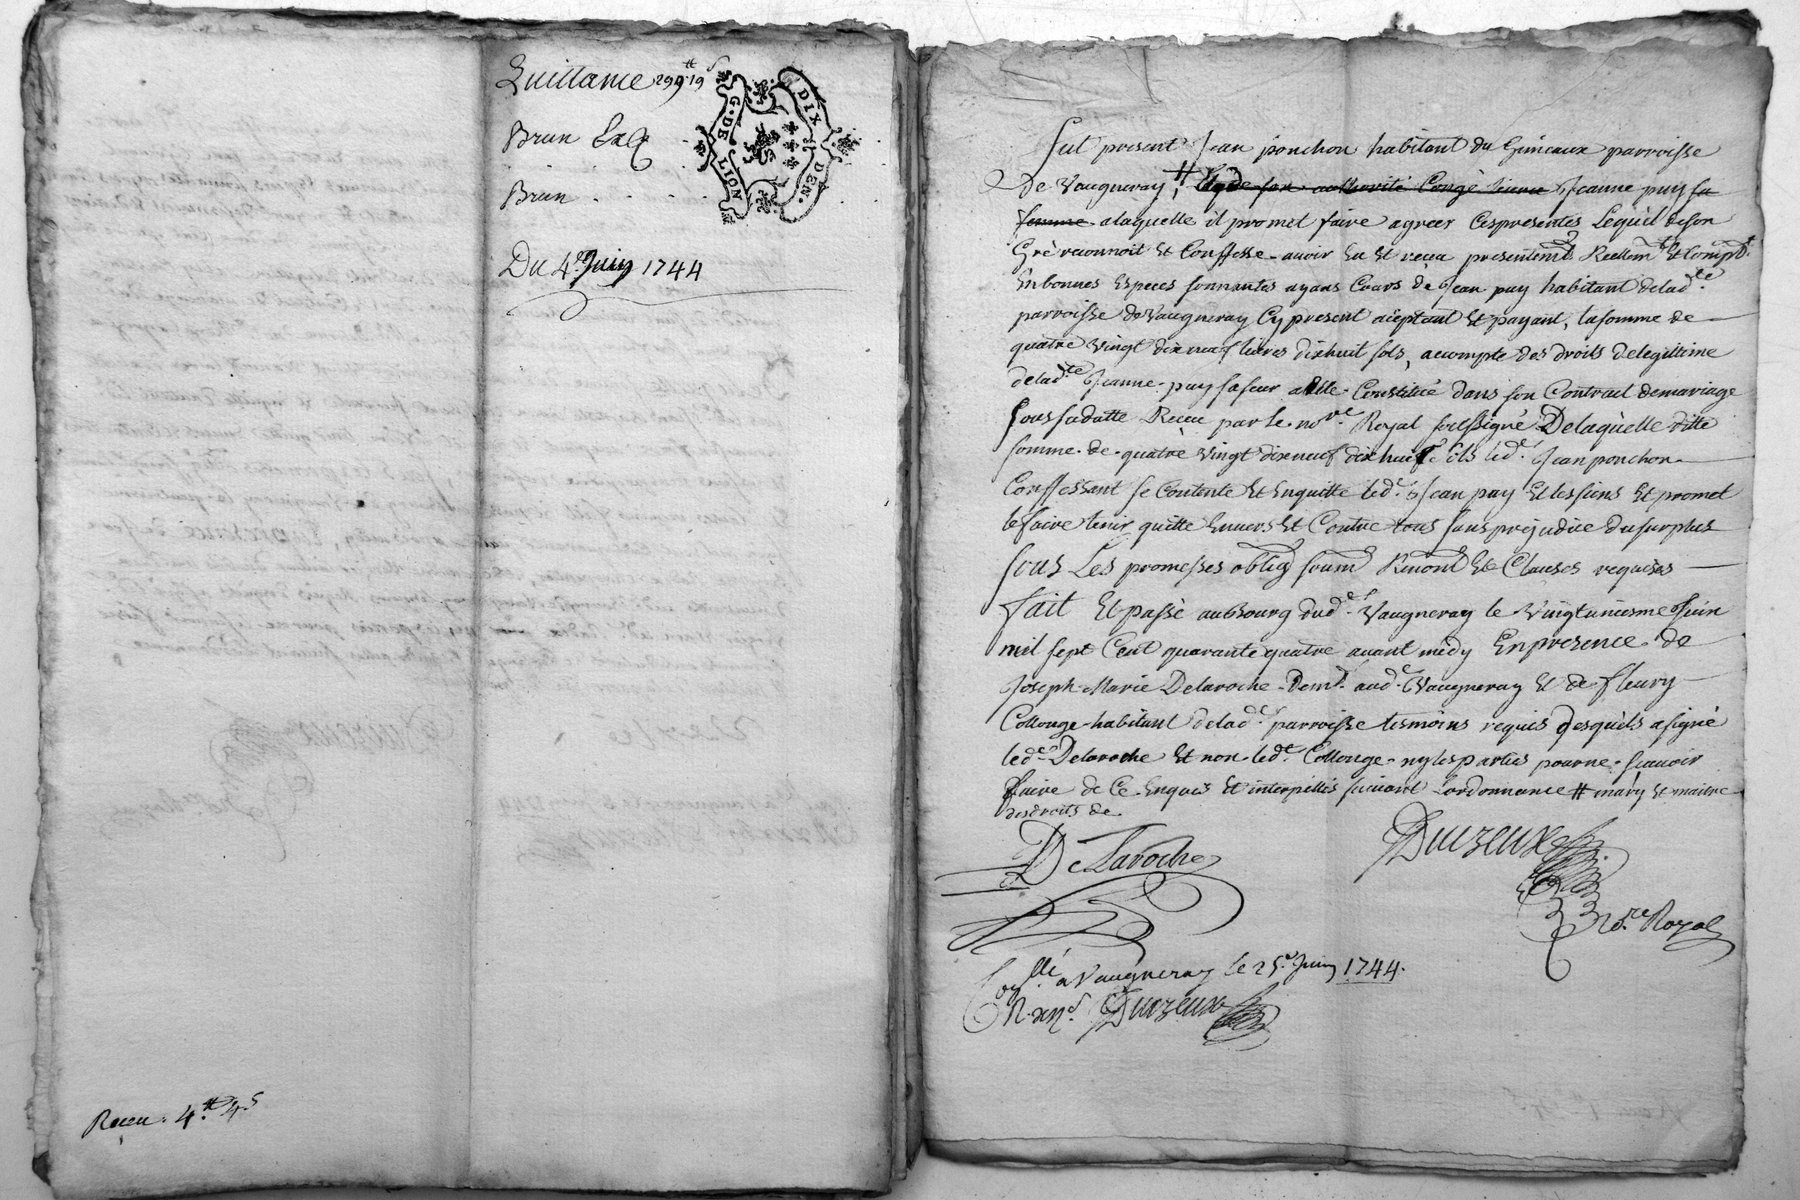 Quittance 299# 19s
Brun
Brun
Du 4e Juin 1744
G. DE LION
DIX DEN.
Receu 4# 4s
Fut present Jean ponchon habitant du Gimeaux parroisse
de Vaugneray # de son authorité Congé Jeanne puy sa
femme alaquelle il promet faire agreer Cespresentes Lequel deson
Gré reconnoit Et Conffesse avoir Eu Et receu presentemt Reellemt Et Compt
Enbonnes Especes sonnantes ayans Cours de Jean puy habitant deladte
parroisse deVaugneray Cy present aceptant Et payant, lasomme de
quatre Vingt dix neuf livres dixhuit sols, acompte des droits delegittime
deladte Jeanne puy sa seur a Elle Constitué dans son Contract demariage
sous sadatte Receu par le nore Royal sousSigné Delaquelle ditte
somme de quatre vingt dix neuf dix huit sols led. Jean ponchon
Conffessant se Contente Et Enquitte led. Jean puy Et lessiens Et promet
lefaire tenir quitte Envers Et Contre tous sans prejudice dusurplus
sous Les promesses oblig soum Renond Et Clauses requises
fait Et passé auBourg dud. Vaugneray le Vingtuniesme Juin
mil sept Cent quarante quatre avant midy Enpresence de
Joseph Marie Delaroche demt. aud. Vaugneray Et de fleury
Collonge habitant delad. parroisse tesmoins requis desquels asigné
led. Delaroche Et non led. Collonge ny lesparties pourne scavoir
faire de Ce Enquis Et interpellés suivant Lordonnance # mary Et maitre
desdroits de
DeLaroche
Duizeux
Nore Royal
Collé a Vaugneray le 25e Juin 1744.
Duizeux